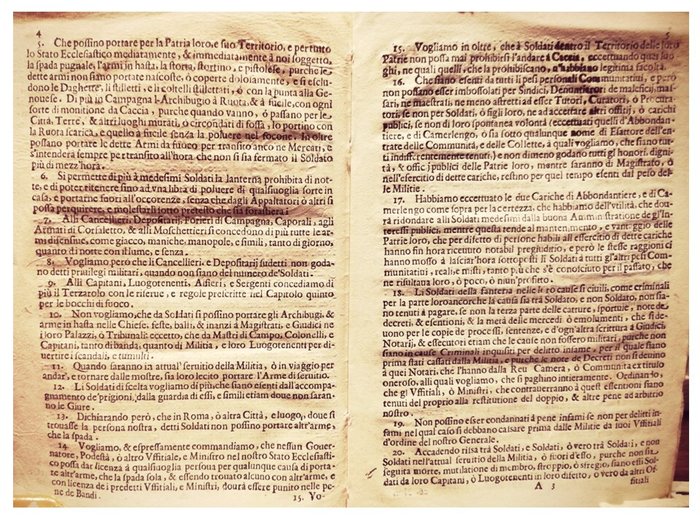 4
5. Che possino portare per la Patria loro, e suo Territorio, e per tutto
lo Stato Ecclesiastico mediatamente, & immediatamente à noi soggetto,
la spada pugnale, l'armi in hasta, la storta, stortino, e pistolese, purche le
dette armi non siano portate nascoste, ò coperte dolosamente, e si esclu-
dono le Daghette, li stiletti, & i coltelli stillettati, ò con la punta alla Ge-
nouese. Di più in Campagna l'Archibugio à Ruota, & à fucile, con ogni
sorte di monitione da Caccia, purche quando vanno, ò passano per le
Città, Terre, & altri luoghi murati, ò circondati di fossa, lo portino con
la Ruota scarica, e quello à fucile senza la poluere nel focone. In oltre
possano portare le dette Armi da fuoco per transito anco ne Mercati, e
s'intenderà sempre per transito all'hora che non si sia fermato il Soldato
più di mezz'hora.
6. Si permette di più à medesimi Soldati la lanterna prohibita di not-
te, e di poter ritenere sino ad vna libra di poluere di qualsiuoglia sorte in
casa, e portarne fuori all'occorenze, senza che dagli Appaltatori ò altri si
possa perquirere, e molestarli sotto pretesto che sia forastiera.
7. Alli Cancellieri, Depositarij, Forieri di Campagna, Caporali, agli
Armati di Corsaletto, & alli Moschettieri si concedono di più tutte le ar-
mi difensiue, come giacco, maniche, manopole, e simili, tanto di giorno,
quanto di notte con il lume, e senza.
8. Vogliamo però che il Cancellieri, e Depositarij sudetti non goda-
no detti priuilegi militari, quando non siano del numero de'Soldati.
9. Alli Capitani, Luogotenenti, Alfieri, e Sergenti concediamo di
più il Terzarolo con le riserue, e regole prescritte nel Capitolo quinto
per le bocchi di fuoco.
10. Non vogliamo, che da Soldati si possino portare gli Archibugi, &
arme in hasta nelle Chiese, feste, balli, & inanzi à Magistrati, e Giudici ne
i loro Palazzi, ò Tribunali eccetto, che da Mastri di Campo, Colonelli, e
Capitani, tanto di banda, quanto di Militia, e loro Luogotenenti per di-
uertire i scandali, e tumulti.
11. Quando saranno in attual'seruitio della Militia, ò in viaggio per
andar', e tornare dalle mostre, sia loro lecito portare l'Arme di seruitio.
12. Li Soldati di scelta vogliamo di più, che siano esenti dall'accompa-
gnamento de'prigioni, dalla guardia di essi, e simili etiam doue non saran-
no le Giure.
13. Dichiarando però, che in Roma, ò altra Città, e luogo, doue si
trouasse la persona nostra, detti Soldati non possino portare altr'arme,
che la spada.
14. Vogliamo, & espressamente commandiamo, che nessun Gouer-
natore, Podestà, ò altro Vffitiale, e Ministro nel nostro Stato Ecclesiasti-
co possa dar licenza à qualsiuoglia persona per qualunque causa di porta-
re altr'arme, che la spada sola, & essendo trouato alcuno con altr'arme, e
con licenza de i predetti Vffitiali, e Ministri, dourà essere punito nelle pe-
ne de Bandi.
15. Vo-
5
15. Vogliamo in oltre, che à Soldati dentro il Territorio delle loro
Patrie non possa mai prohibirsi l'andare à Caccia, eccettuando quei luo-
ghi, ne quali quelli, che la prohibiscano, n'habbiano legitima facoltà.
16. Che siano esenti da tutti i pesi personali Communitatiui, e però
non possano esser imbossolati per Sindici, Denuntiatori de maleficij, mas-
sari, ne maestrali, ne meno astretti ad esser Tutori, Curatori, ò Per curato-
ri, se non per Soldati, ò figli loro, ne ad accettare altri offitij, ò carichi
publici, se non di loro spontanea volontà eccettuati quelli d'Abbondan-
tiere, e di Camerlengo, ò sia sotto qualunque nome di Esattore dell'en-
trate delle Communità, e delle Collette, à quali vogliamo, che siano tut-
ti indifferentemente tenuti; e non dimeno godano tutti gl'honori, digni-
tà, & offitij publici delle Patrie loro, mantre saranno di Magistrato, ò
nell'esercitio di dette cariche, resino per quei tempo esenti dal peso del-
le Militie.
17. Habbiamo eccettuato le due Cariche di Abbondantiere, e di Ca-
merlengo come sopra per la certezza, che habbiamo dell'vtilità, che dou-
rà ridondare alli Soldati medesimi dalla buona Amministratione de gl'In-
teressi publici, mentre questa rende al mantenimento, e vantaggio delle
Patrie loro, che per difetto di persone habili all'esercitio di dette cariche
hanno fin hora riceuuto notabil pregiudirio, e però le stesse raggioni ci
hanno mosso à lasciar'hora sottoposti li Soldati à tutti gl'altri pesi Com-
munitatiui, reali, e misti, tanto più che s'è conosciuto per il passato, che
ne risultaua loro, ò poco, ò niun profitto.
18. Li Soldati della fanteria nelle loro cause si ciuili, come criminali
per la parte loro ancorche la causa sia trà Soldato, e non Soldato, non sia-
no tenuti à pagare, se non la terza parte delle catture, sportule, note de
decreti, & esentioni, & la metà delle mercedi ò emolumenti, che si de-
uono per le copie de processi, sentenze, e d'ogn'altra scrittura à Giudici
Notarij, & essecutori etiam che le cause non fossero militari, purche non
siano in cause Criminali inquisiti per delitto infame, per il quale siano
prima stati cassati dalla Militia, e purche le note de Decreti non si deuino
à quei Notari, che l'hanno dalla Reu. Camera, ò Communità ex titulo
oneroso, alli quali vogliamo, che si paghino interamente. Ordiniamo,
che gli Vffitiali, ò Ministri, che contrauerranno à questa esentione siano
tenuti del proprio alla restitutione del doppio, & altre pene ad arbitrio
nostro.
19. Non possino esser condannati à pene infami se non per delitti in-
fami nel qual caso si debbano cassare prima dalle Militie da tuoi Vffitiali
d'ordine del nostro Generale.
20. Accadendo rissa trà Soldati, e Soldati, ò vero trà Soldati, e non
Soldati nell'attual seruitio della Militia, ò fuori d'esso, purche non sia
seguita morte, mutilatione di membro, stroppio, ò sfregio, siano essi Sol-
dati da loro Capitani, ò Luogotenenti in loro difetto, ò vero da altri Of-
A 3
fitiali